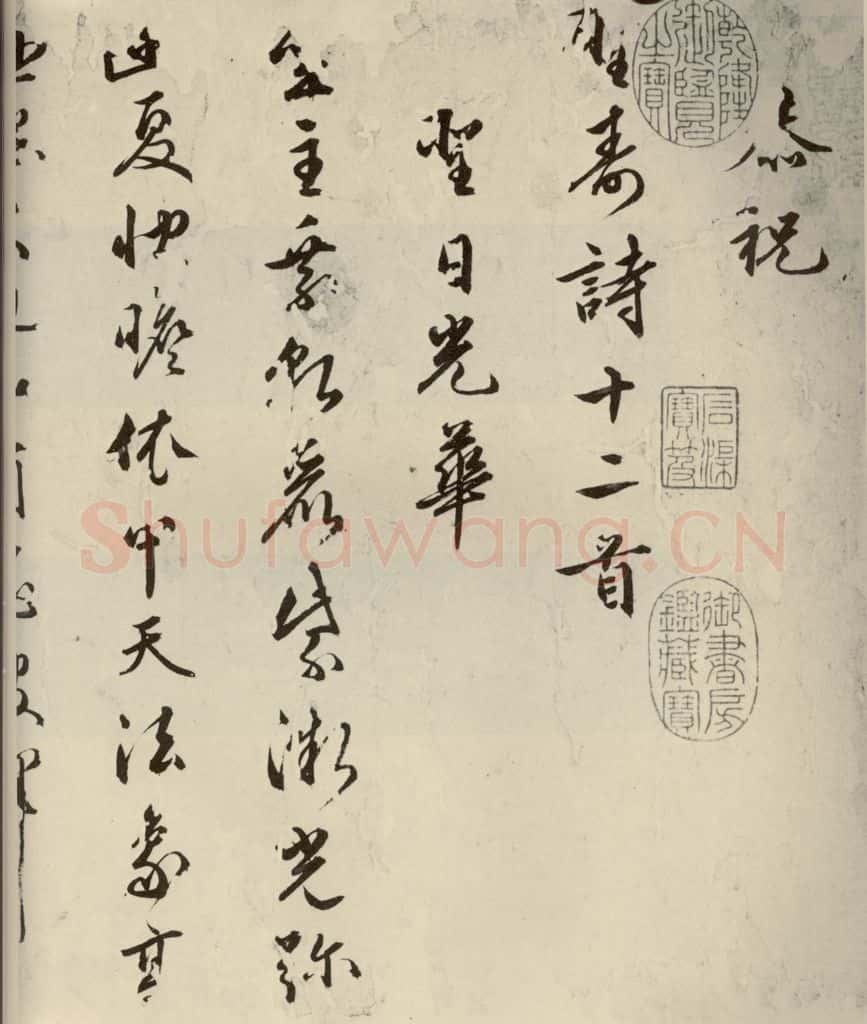 恭祝
聖壽詩十二首
聖日光華
主乘乾麗紫微光弥
區夏快瞻依中天法象
乾隆御覽之寶
石渠寶笈
御書房鑑藏寶
Shufawang.CN